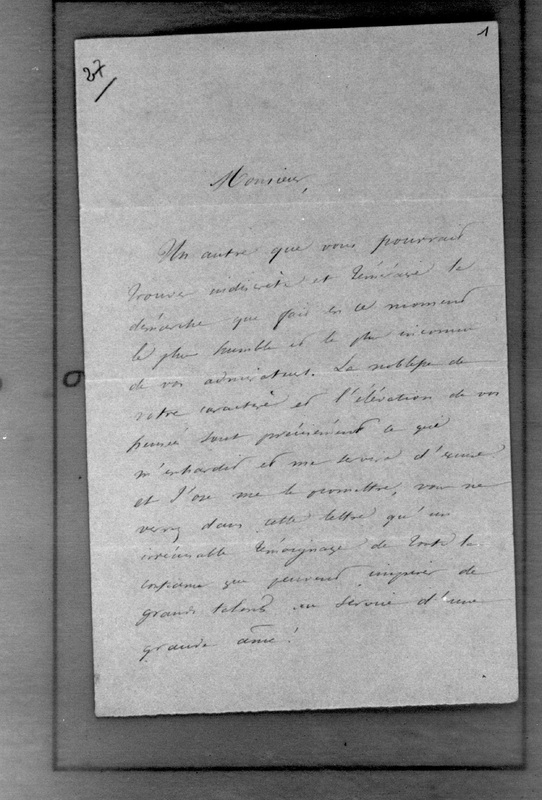 27
1
Monsieur,
Un autre que vous pourrait
trouver indiscrète et téméraire la
démarche que fait en ce moment
le plus humble et le plus inconnu
de vos admirateurs. La noblesse de
votre caractère et l'élévation de vos
pensées sont précisément ce qui
m'enhardit et me servira d'excuse
et j'ose me le promettre, vous ne
verrez dans cette lettre qu'un
irrécusable témoignage de toute la
confiance que peuvent inspirer de
grands talents au service d'une
grande âme!